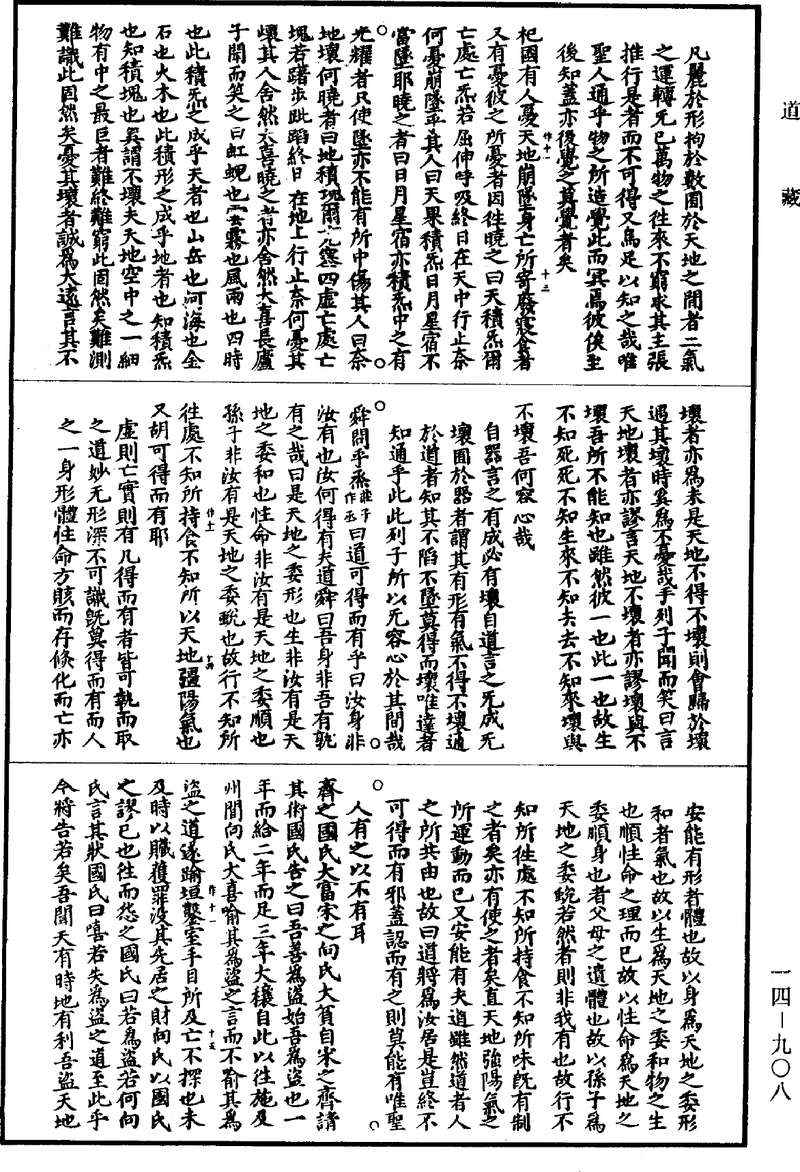 道藏
凡麗於形拘於數囿於天地之間者二氣
之運轉无已萬物之往來不窮求其主張
推行是者而不可得又烏足以知之哉唯
聖人通乎物之所造覺此而冥焉彼俟至
後知蓋亦後覺之莫覺者矣
杞國有人憂天地崩墜身亡所寄廢寢食者
又有憂彼之所憂者因往曉之曰天積炁爾
亡處亡炁若屈伸呼吸終日在天中行止奈
何憂崩墜乎其人曰天果積炁日月星宿不
當墜耶曉之者曰日月星宿亦積炁中之有
光耀者只使墜亦不能有所中傷其人曰奈
地壞何曉者曰地積塊爾充塞四虛亡處亡
塊若躇步跐蹈終日在地上行止奈何憂其
壞其人舍然大喜曉之者亦舍然大喜長廬
子聞而笑之曰虹蜺也雲霧也風雨也四時
也此積炁之成乎天者也山岳也河海也金
石也火木也此積形之成乎地者也知積炁
也知積塊也奚謂不壞夫天地空中之一細
物有中之最巨者難終難窮此固然矣難測
難識此固然矣憂其壞者誠為大遠言其不
壞者亦為未是天地不得不壞則會歸於壞
遇其壞時奚為不憂哉乎列子聞而笑曰言
天地壞者亦謬言天地不壞者亦謬壞與不
壞吾所不能知也雖然彼一也此一也故生
不知死死不知生來不知去去不知來壞與
不壞吾何容心哉
自器言之有成必有壞自道言之无成无
壞囿於器者謂其有形有氣不得不壞通
於道者知其不陷不墜莫得而壞唯達者
知通乎此此列子所以无容心於其間哉
舜問乎烝莊子作丞曰道可得而有乎曰汝身非
汝有也汝何得有夫道舜曰吾身非吾有孰
有之哉曰是天地之委形也生非汝有是天
地之委和也性命非汝有是天地之委順也
孫子非汝有是天地之委蛻也故行不知所
往處不知所持食不知所以天地彊陽氣也
又胡可得而有耶
虛則亡實則有凡得而有者皆可執而取
之道妙无形深不可識既莫得而有而人
之一身形體性命方賅而存倏化而亡亦
安能有形者體也故以身為天地之委形
和者氣也故以生為天地之委和物之生
也順性命之理而已故以性命為天地之
委順身也者父母之遺體也故以孫子為
天地之委蛻若然者則非我有也故行不
知所往處不知所持食不知所味既有制
之者矣亦有使之者矣直天地強陽氣之
所運動而已又安能有夫道雖然道者人
之所共由也故曰道將為汝居是豈終不
可得而有邪蓋認而有之則莫能有唯聖
人有之以不有耳
齊之國氏大富宋之向氏大貧自宋之齊請
其術國氏告之曰吾善為盜始吾為盜也一
年而給二年而足三年大穰自此以往施及
州閭向氏大喜喻其為盜之言而不喻其為
盜之道遂踰垣鑿室手目所及亡不探也未
及時以贓獲罪沒其先居之財向氏以國氏
之謬己也往而怨之國氏曰若為盜若何向
氏言其狀國氏曰嘻若失為盜之道至此乎
今將告若矣吾聞天有時地有利吾盜天地
一四—九〇八